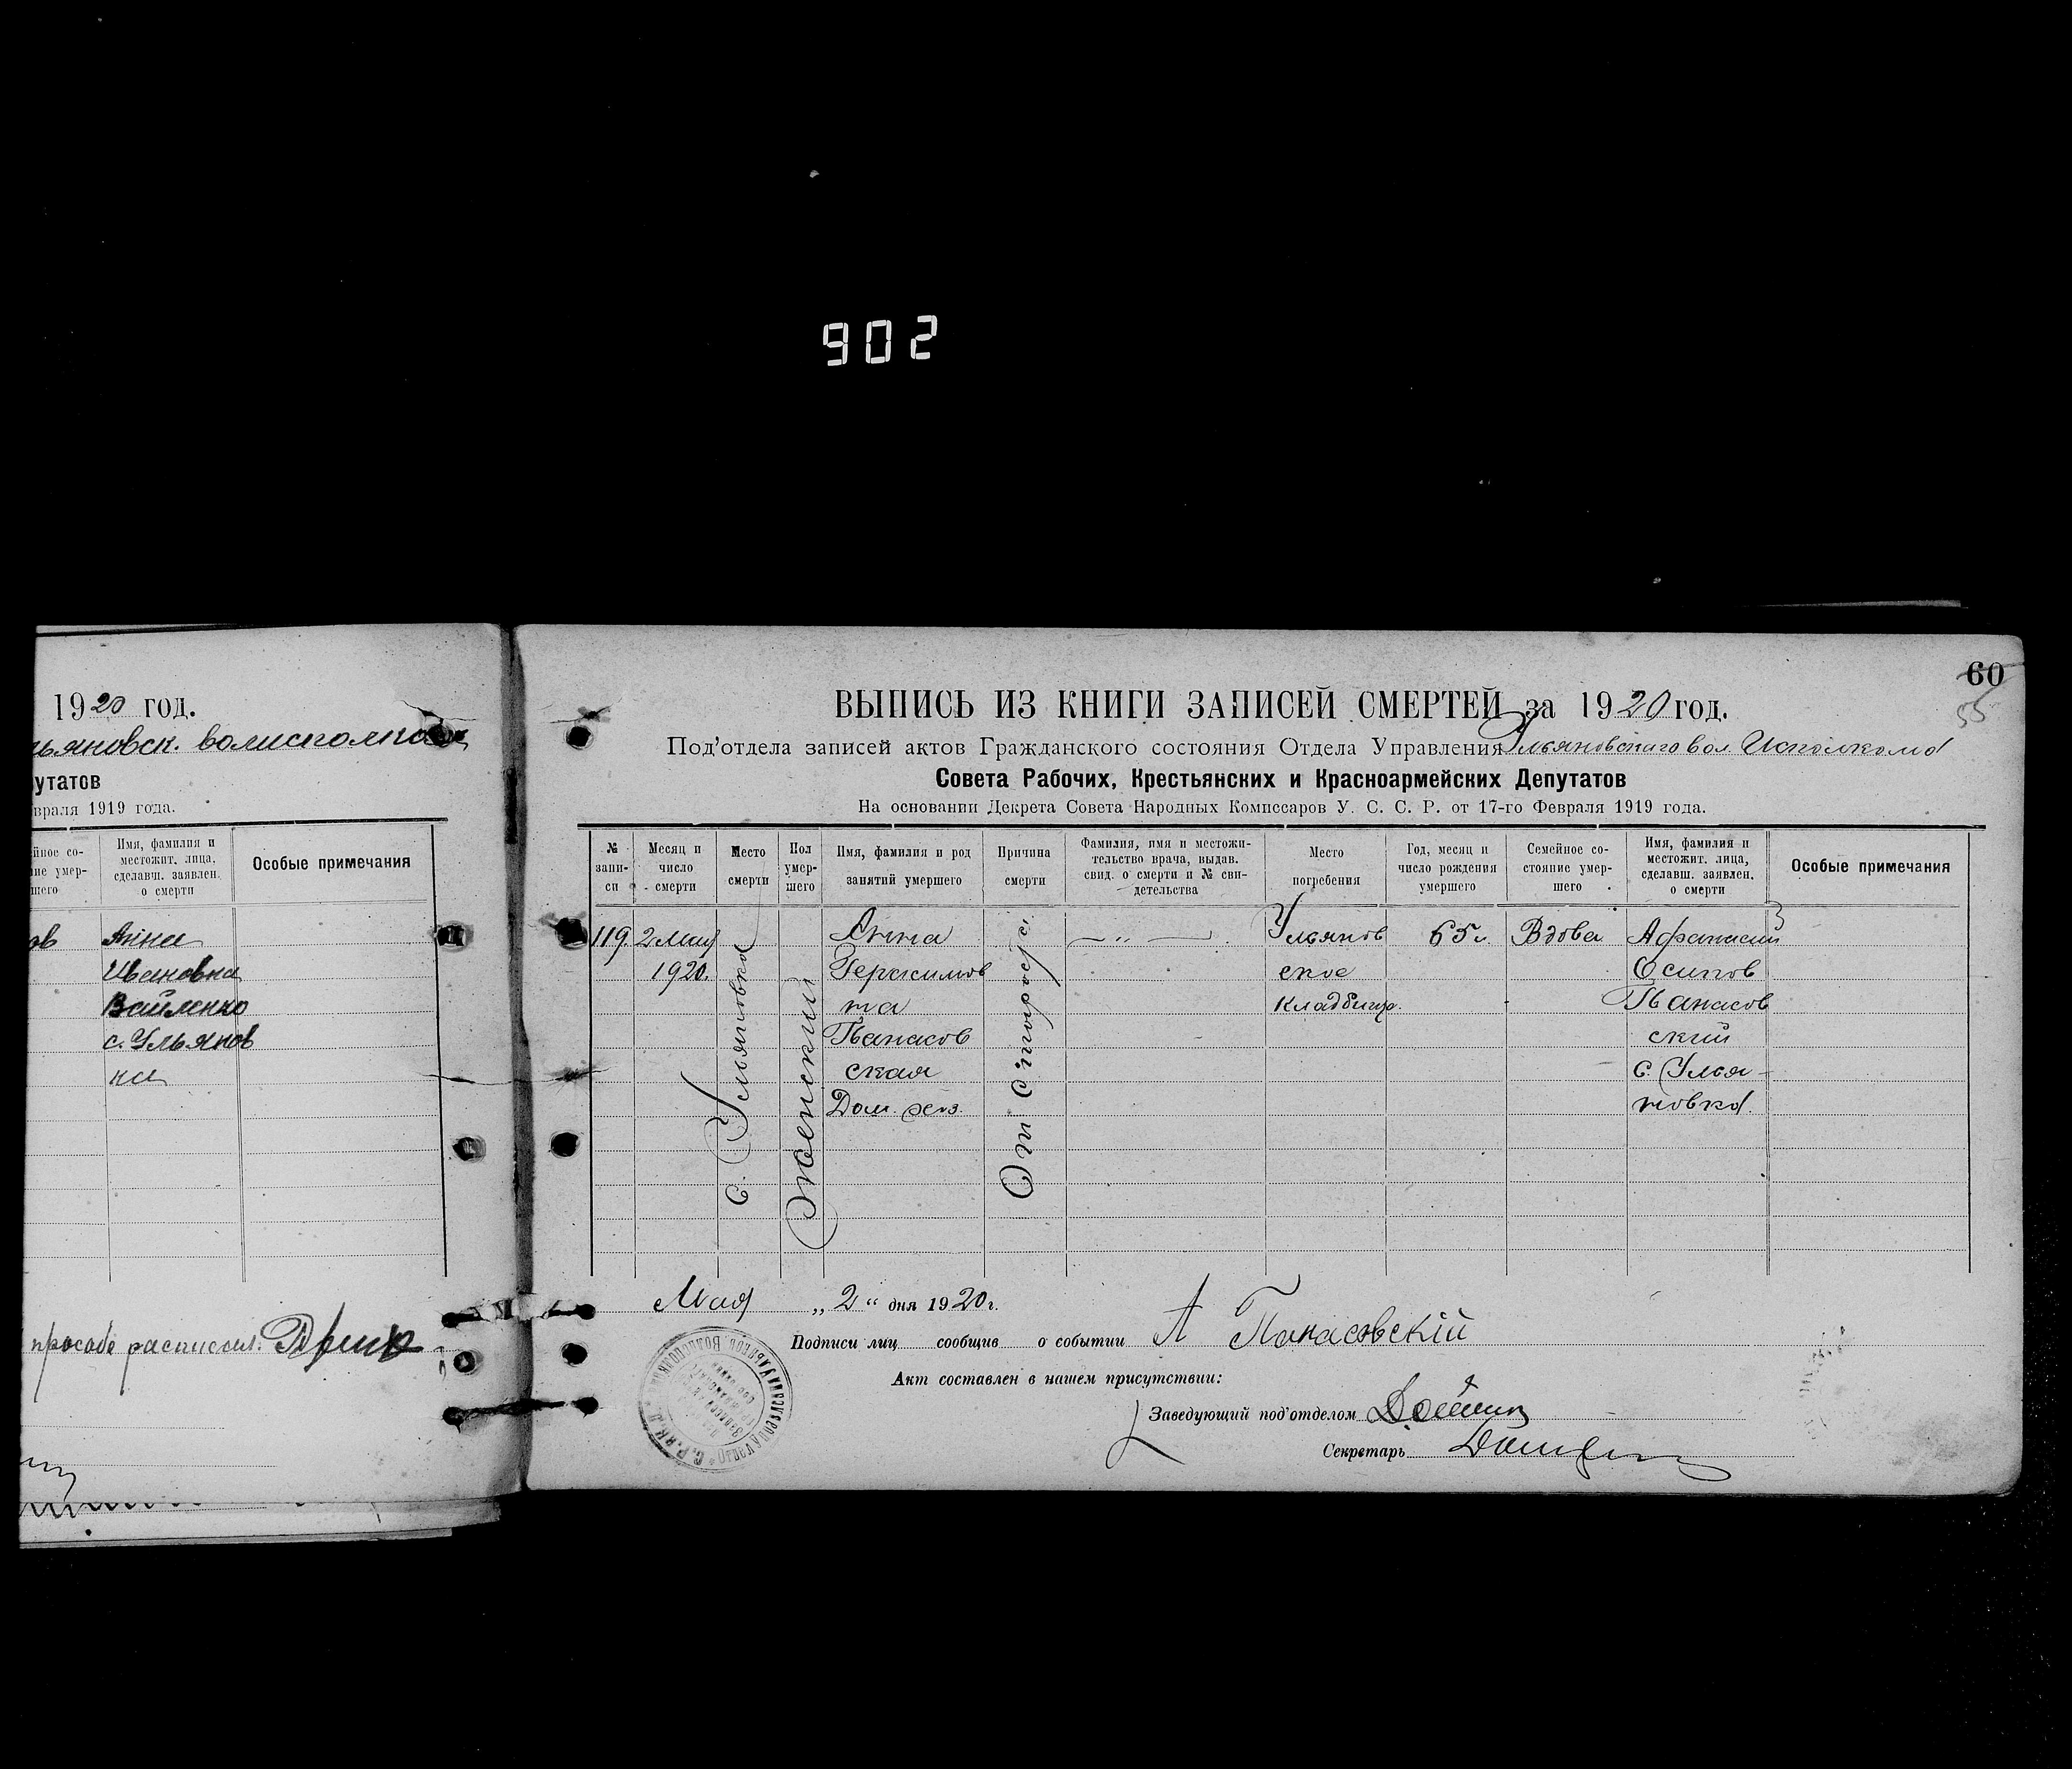 902
1920 год.
льяновск. волисполко
путатов
враля 1919 года.
йное со-
ние умер-
шего
Имя, фамилия и
местожит. лица,
сделавш. заявлен.
о смерти
Особые примечания
ов
Анна
Ивановна
с. Ульянов
ка
60
55
ВЫПИСЬ ИЗ КНИГИ ЗАПИСЕЙ СМЕРТЕЙ за 1920 год.
Под'отдела записей актов Гражданского состояния Отдела Управления Ульяновского вол Исполкома
Совета Рабочих, Крестьянских и Красноармейских Депутатов
На основании Декрета Совета Народных Комиссаров У. С. С. Р. от 17-го Февраля 1919 года.
№
запи-
си
Месяц и
число
смерти
Место
смерти
Пол
умер-
шего
Имя, фамилия и род
занятий умершего
Причина
смерти
Фамилия, имя и местожи-
тельство врача, выдав.
свид. о смерти и № сви-
детельства
Место
погребения
Год, месяц и
число рождения
умершего
Семейное со-
стояние умер-
шего
Имя, фамилия и
местожит. лица,
сделавш. заявлен.
о смерти
Особые примечания
119.
2 Мая
1920.
с. Ульяновка
Женский
Анна
Герасимов
на
Панасов
ская
Дом. хоз.
От старости
— „ —
Ульянов
ское
кладбище.
65 л.
Вдова
Афанасий
Осипов
Панасов
ский
с. Улья-
новка.
Мая „2“ дня 1920 г.
Подписи лиц сообщив о событии А Панасовскій
Акт составлен в нашем присутствии:
Заведующий под'отделом
Секретарь